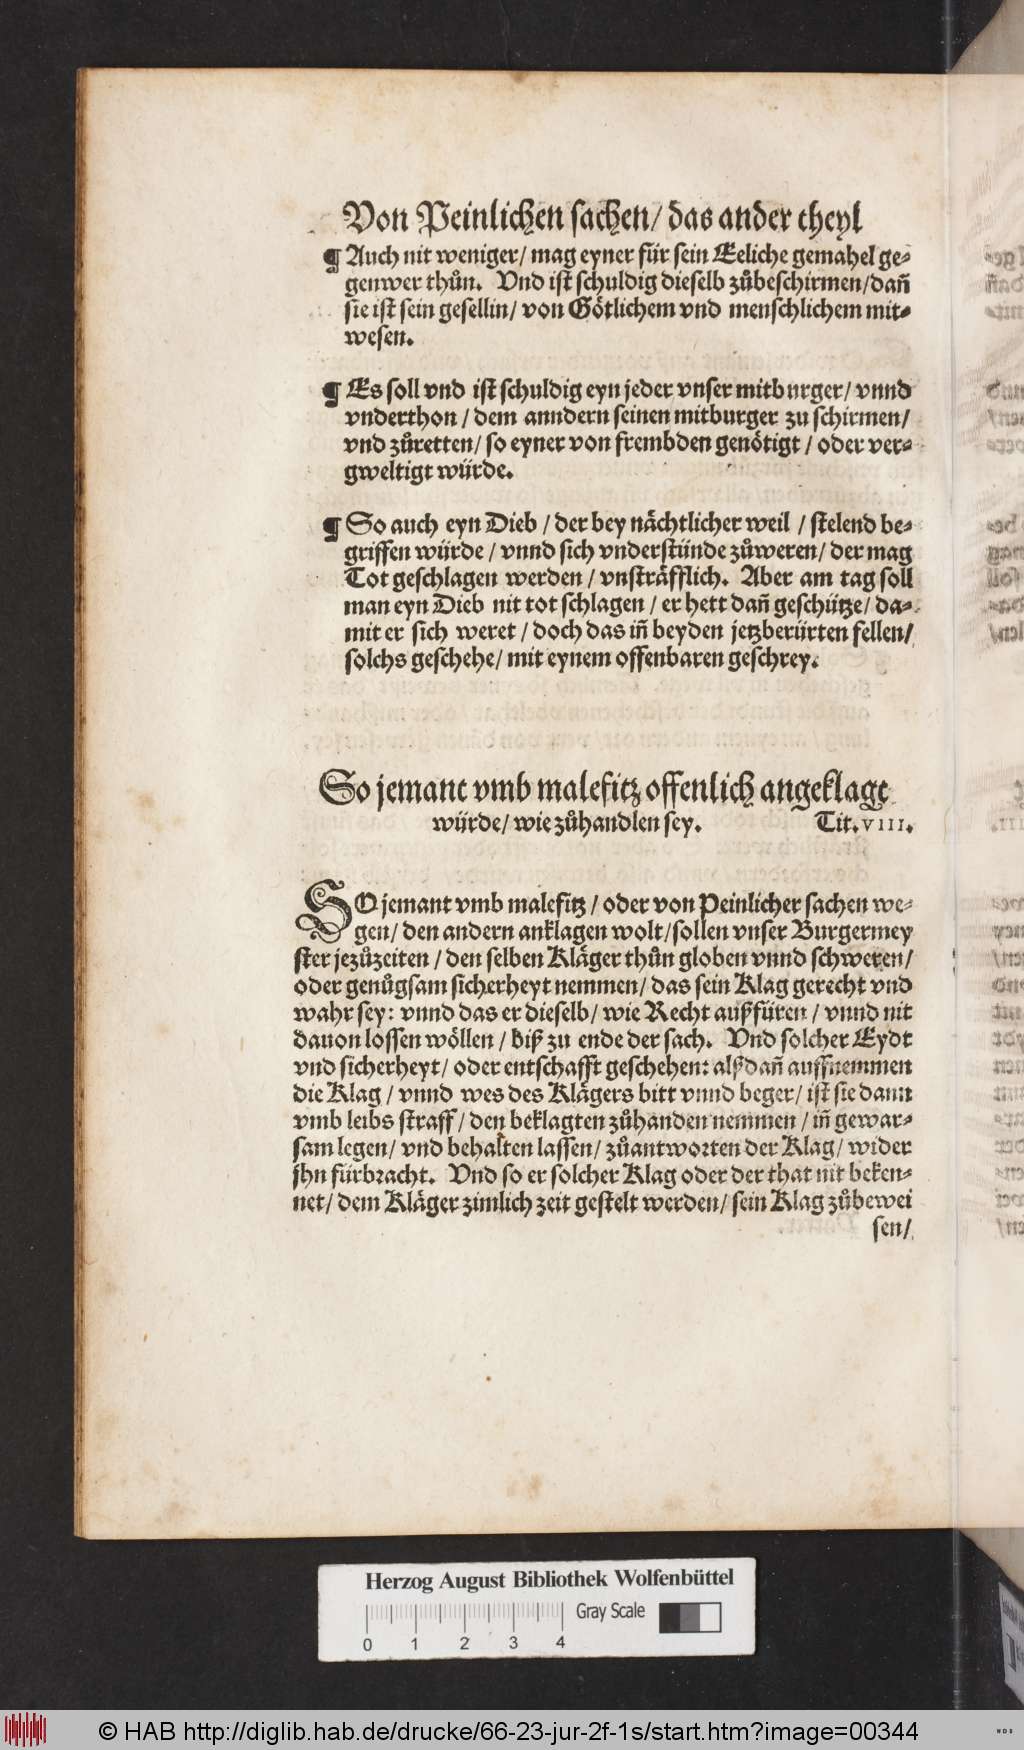 Von Peinlichen sachen/ das ander theyl
¶ Auch nit weniger/ mag eyner für sein Eeliche gemahel ge⸗
genwer thůn. Vnd ist schuldig dieselb zůbeschirmen/dañ
sie ist sein gesellin/ von Götlichem vnd menschlichem mit⸗
wesen.
¶ Es soll vnd ist schuldig eyn jeder vnser mitburger/ vnnd
vnderthon / dem anndern seinen mitburger zu schirmen/
vnd zůretten/ so eyner von frembden genötigt / oder ver⸗
gweltigt würde.
¶ So auch eyn Dieb / der bey nächtlicher weil / stelend be⸗
griffen würde / vnnd sich vnderstünde zůweren/ der mag
Tot geschlagen werden / vnsträfflich. Aber am tag soll
man eyn Dieb nit tot schlagen / er hett dañ geschütze/ da⸗
mit er sich weret / doch das iñ beyden jetzberürten fellen/
solchs geschehe/ mit eynem offenbaren geschrey.
So jemant vmb malefitz offenlich angeklagt
würde/ wie zůhandlen sey. Tit. VIII.
SO jemant vmb malefitz / oder von Peinlicher sachen we⸗
gen/ den andern anklagen wolt/sollen vnser Burgermey
ster jezůzeiten / den selben Kläger thůn globen vnnd schweren/
oder genůgsam sicherheyt nemmen/ das sein Klag gerecht vnd
wahr sey: vnnd das er dieselb/ wie Recht außfüren / vnnd nit
dauon lossen wöllen / biß zu ende der sach. Vnd solcher Eydt
vnd sicherheyt/ oder entschafft geschehen: alßdañ auffnemmen
die Klag / vnnd wes des Klägers bitt vnnd beger/ ist sie dann
vmb leibs straff / den beklagten zůhanden nemmen / iñ gewar⸗
sam legen/ vnd behalten lassen/ zůantworten der Klag/ wider
jhn fürbracht. Vnd so er solcher Klag oder der that nit beken⸗
net/ dem Kläger zimlich zeit gestelt werden/ sein Klag zůbewei
sen/
Herzog August Bibliothek Wolfenbüttel
Gray Scale
0 1 2 3 4
© HAB http://diglib.hab.de/drucke/66-23-jur-2f-1s/start.htm?image=00344